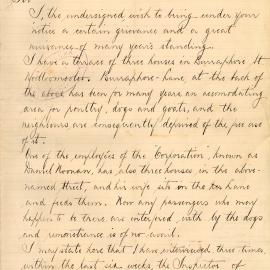 Sir
I, the undersigned wish to bring under your
notice a certain grievance and a great
nuisance of many years standing.
I have a terrace of three houses in Burraphore St
Woolloomooloo. Burraphore-lane at the back of
the above has been for many years an accomodating
area for poultry, dogs and goats, and the
neighbours are consequently deprived of the free use
of it.
One of the employees of the "Corporation", known as
Daniel Noonan, has also three houses in the above-
named street, and his wife sits on the lane
and feeds them. Now any passengers who may
happen to be there, are interfered with by the dogs
and remonstrance is of no avail.
I may state here that I have interviewed three times
within the last six weeks, the Inspector of